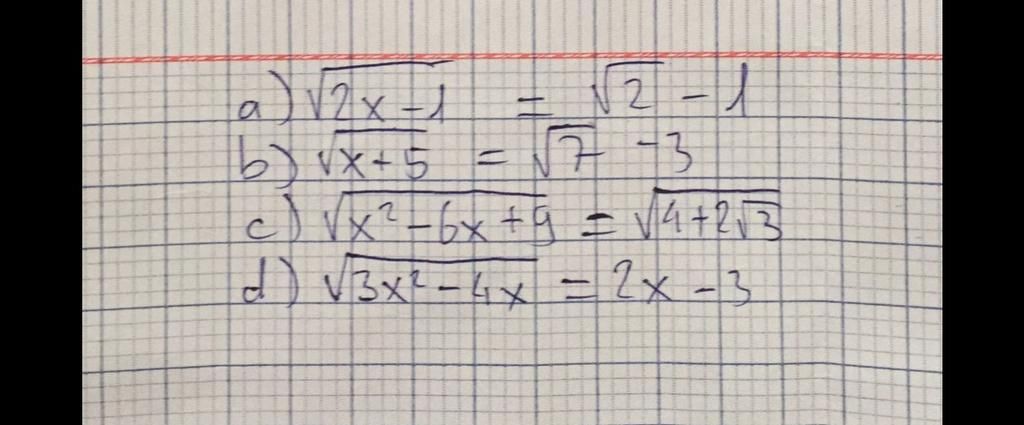 a) √(2x-1) = √2 - 1
b) √(x+5) = √7 - 3
c) √(x²-6x+9) = √(4+2√3)
d) √(3x²-4x) = 2x - 3